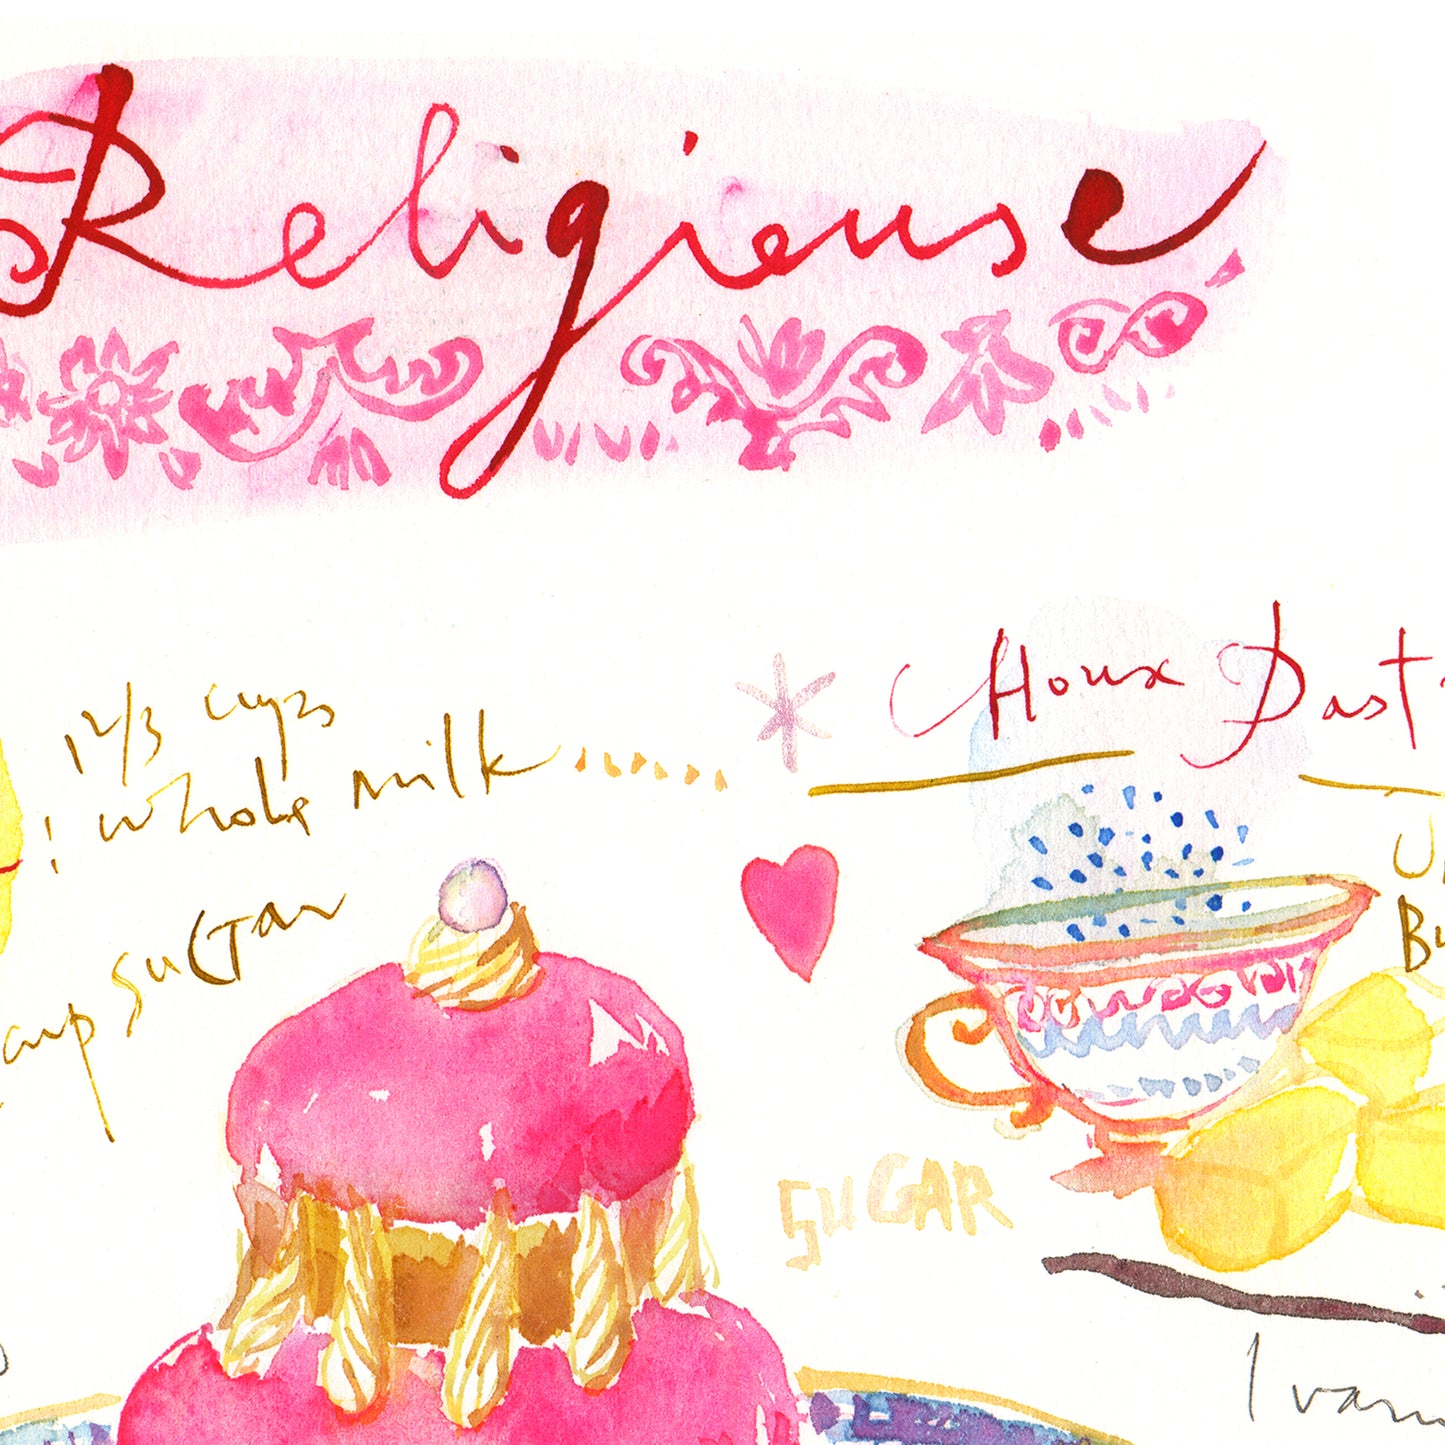 Religieuse
1 2/3 cups
whole milk
cup sugar
Houx Past
SUGAR
1 vani